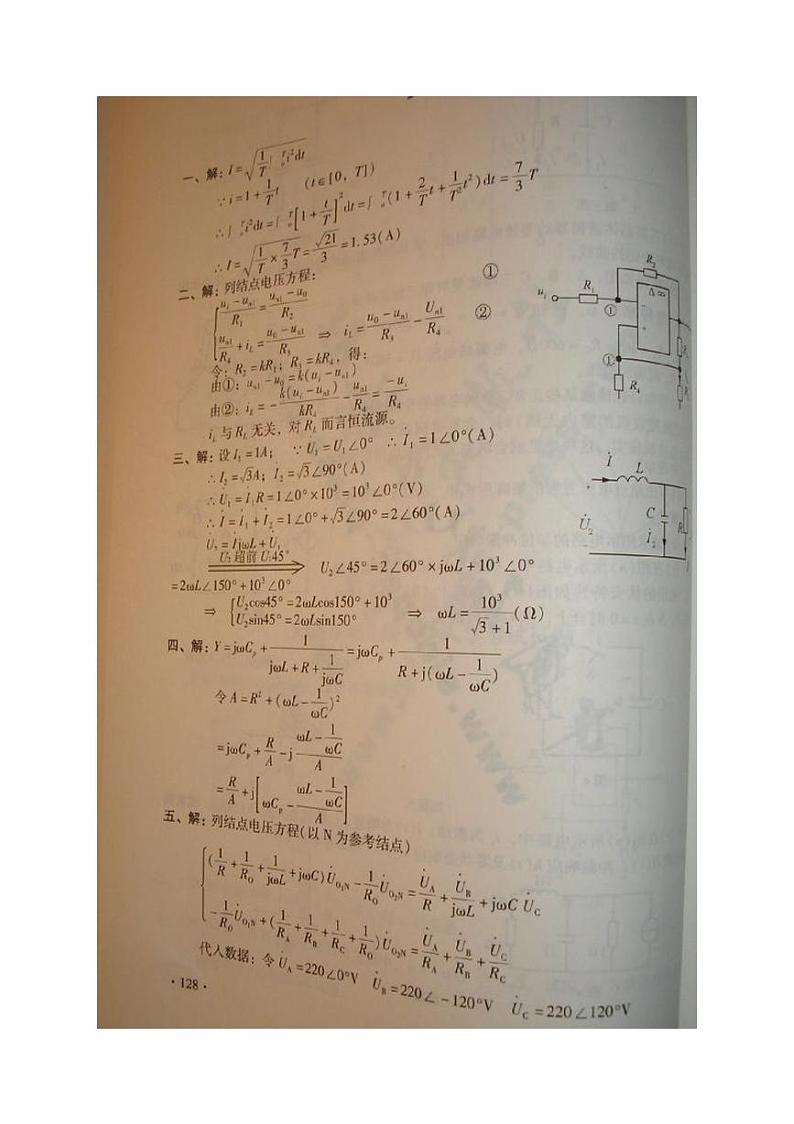 一、解:I=√(1/T ∫₀ᵀ i²dt)
∵i=1+1/T t (t∈[0, T])
∴∫₀ᵀ i²dt=∫₀ᵀ[1+t/T]²dt=∫₀ᵀ(1+2/T t+1/T² t²)dt=7/3 T
∴I=√(1/T×7/3 T)=√21/3=1.53(A)
二、解:列结点电压方程:
{(uᵢ-uₙ₁)/R₁=(uₙ₁-u₀)/R₂ ①
uₙ₁/R₄+i_L=(u₀-uₙ₁)/R₃ ⇒ i_L=(u₀-uₙ₁)/R₃-Uₙ₁/R₄ ②
令:R₂=kR₁;R₃=kR₄,得:
由①:uₙ₁-u₀=k(uᵢ-uₙ₁)
由②:i_L=-k(uᵢ-uₙ₁)/kR₄-uₙ₁/R₄=-uᵢ/R₄
i_L与R_L无关,对R_L而言恒流源。
三、解:设I₁=1A; ∵U̇₁=U₁∠0° ∴İ₁=1∠0°(A)
∴I₂=√3A;İ₂=√3∠90°(A)
∴U̇₁=İ₁R=1∠0°×10³=10³∠0°(V)
∴İ=İ₁+İ₂=1∠0°+√3∠90°=2∠60°(A)
U̇₂=İjωL+U̇₁
U̇₂超前U̇₁45° ⇒ U₂∠45°=2∠60°×jωL+10³∠0°
=2ωL∠150°+10³∠0°
⇒ {U₂cos45°=2ωLcos150°+10³
U₂sin45°=2ωLsin150° ⇒ ωL=10³/(√3+1)(Ω)
四、解:Y=jωCₚ+1/(jωL+R+1/jωC)=jωCₚ+1/(R+j(ωL-1/ωC))
令A=R²+(ωL-1/ωC)²
=jωCₚ+R/A-j(ωL-1/ωC)/A
=R/A+j[ωCₚ-(ωL-1/ωC)/A]
五、解:列结点电压方程(以N为参考结点)
{(1/R+1/R_O+1/jωL+jωC)U̇_O₁N-1/R_O U̇_O₂N=U̇_A/R+U̇_B/jωL+jωC U̇_C
-1/R_O U̇_O₁N+(1/R_A+1/R_B+1/R_C+1/R_O)U̇_O₂N=U̇_A/R_A+U̇_B/R_B+U̇_C/R_C
代入数据:令U̇_A=220∠0°V U̇_B=220∠-120°V U̇_C=220∠120°V
·128·
uᵢ
R₁
R₂
Δ∞
①
①
R₄
İ
L
C
İ₂
R
U̇₂